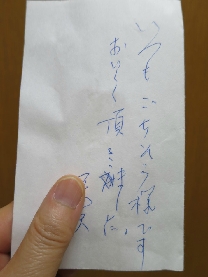 いつもごちそう様です
おいしく頂きました。